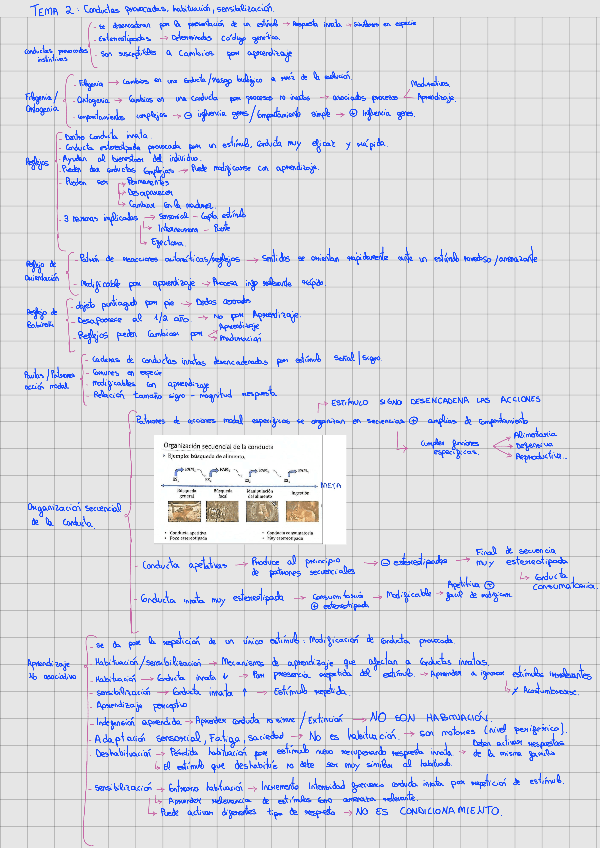 TEMA 2: Conductas provocadas, habituación, sensibilización.
Conductas provocadas instintivas
- Se desencadenan por la presentación de un estímulo → Respuesta innata → Similares en especie
- Estereotipadas → Determinadas código genético.
- Son susceptibles a cambios por aprendizaje
Filogenia/Ontogenia
- Filogenia → Cambios en una conducta/rasgo biológico a raíz de la evolución.
- Ontogenia → Cambios en una conducta por procesos no innatos → asociados procesos → Madurativos
Aprendizaje.
- Comportamientos complejos → ⊖ influencia genes/Comportamiento simple → ⊕ Influencia genes.
Reflejos
- Dentro Conducta innata
- Conducta estereotipada provocada por un estímulo, conducta muy eficaz y rápida.
- Ayudan al bienestar del individuo.
- Pueden dar conductas complejas → Puede modificarse con aprendizaje.
- Pueden ser → Permanentes
→ Desaparecer
→ Cambiar en la madurez
- 3 neuronas implicadas → Sensorial - Capta estímulo
→ Interneurona - Puente
→ Efectora.
Reflejo de Orientación
- Patrón de reacciones automáticas/reflejos → Sentidos se orientan rápidamente ante un estímulo novedoso/amenazante
- Modificable por aprendizaje → Procesa info relevante rápido.
Reflejo de Babinski
- objeto puntiagudo por pie → Dedos
- Desaparece al 1/2 año → no por Aprendizaje.
- Reflejos pueden cambiar por → Aprendizaje
→ Maduración
Pautas/Patrones acción modal
- Cadenas de conductas innatas desencadenadas por estímulo señal/signo.
- Comunes en especie
- modificables con aprendizaje
- Relación tamaño signo - magnitud respuesta.
→ ESTÍMULO SIGNO DESENCADENA LAS ACCIONES
Organización secuencial de la Conducta.
Patrones de acciones modal específicas se organizan en secuencias ⊕ amplias de comportamiento
→ Cumplen funciones específicas. → Alimentaria
→ Defensiva
→ Reproductiva..
Organización secuencial de la conducta
• Ejemplo: búsqueda de alimento.
META
Búsqueda general
Búsqueda focal
Manipulación del alimento
Ingestión
• Conducta apetitiva
• Poco estereotipada
• Conducta consumatoria
• Muy estereotipada
- Conducta apetitivas → Produce al principio de patrones secuenciales → ⊖ estereotipadas → Final de secuencia muy estereotipada
→ Conducta consumatoria.
- Conducta innata muy estereotipada → Consumatoria ⊕ estereotipada → Modificable → Apetitiva ⊕ fácil de modificar
Aprendizaje No asociativo
- Se da por la repetición de un único estímulo: Modificación de conducta provocada.
- Habituación/sensibilización → Mecanismos de aprendizaje que afectan a conductas innatas.
- Habituación → Conducta innata ↓ → Por presencia repetida del estímulo. → Aprender a ignorar estímulos irrelevantes
→ Acostumbrarse.
- Sensibilización → Conducta innata ↑ → Estímulo repetido.
- Aprendizaje perceptivo
- Indefensión aprendida → Aprender conducta no sirve / Extinción → NO SON HABITUACIÓN.
- Adaptación sensorial, Fatiga, saciedad → NO es habituación. → son motores (nivel periférico).
- Deshabituación → Pérdida habituación por estímulo nuevo recuperando respuesta innata → Deben activar respuestas de la misma familia
→ El estímulo que deshabitúe no debe ser muy similar al habituado.
- Sensibilización → Contrario habituación → Incremento Intensidad frecuencia conducta innata por repetición de estímulo.
→ Aprender relevancia de estímulos como amenaza relevante.
→ Puede activar diferentes tipo de respuesta → NO ES CONDICIONAMIENTO.